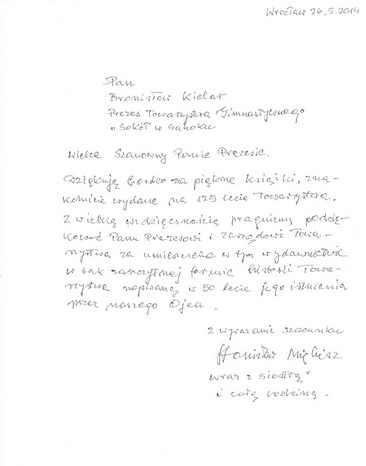 Wrocław 26.5.2014
Pan
Bronisław Kielar
Prezes Towarzystwa Gimnastycznego
„Sokół w Sanoku
Wielce Szanowny Panie Prezesie,
Dziękuję bardzo za piękne książki, zna-
komicie wydane na 125 lecie Towarzystwa.
Z wielką wdzięcznością pragniemy podzię-
kować Panu Prezesowi i Zarządowi Towa-
rzystwa za umieszczenie w tym wydawnictwie
w tak zaszczytnej formie historii Towa-
rzystwa napisanej w 50 lecie jego istnienia
przez naszego Ojca.
Z wyrazami szacunku
Stanisław
wraz z siostrą
i całą rodziną.